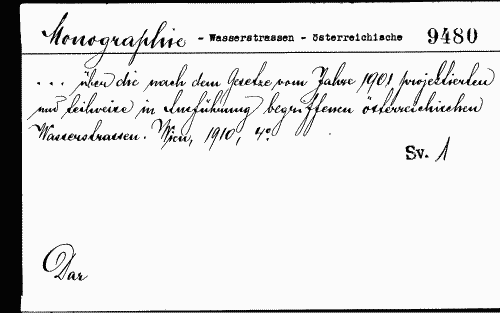 Monographie - Wasserstrassen - österreichische 9480
... über die nach dem Gesetze vom Jahre 1901 projektierten
und teilweise in Ausführung begriffenen österreichischen
Wasserstrassen. Wien, 1910, 4°.
Sv. 1
Dar